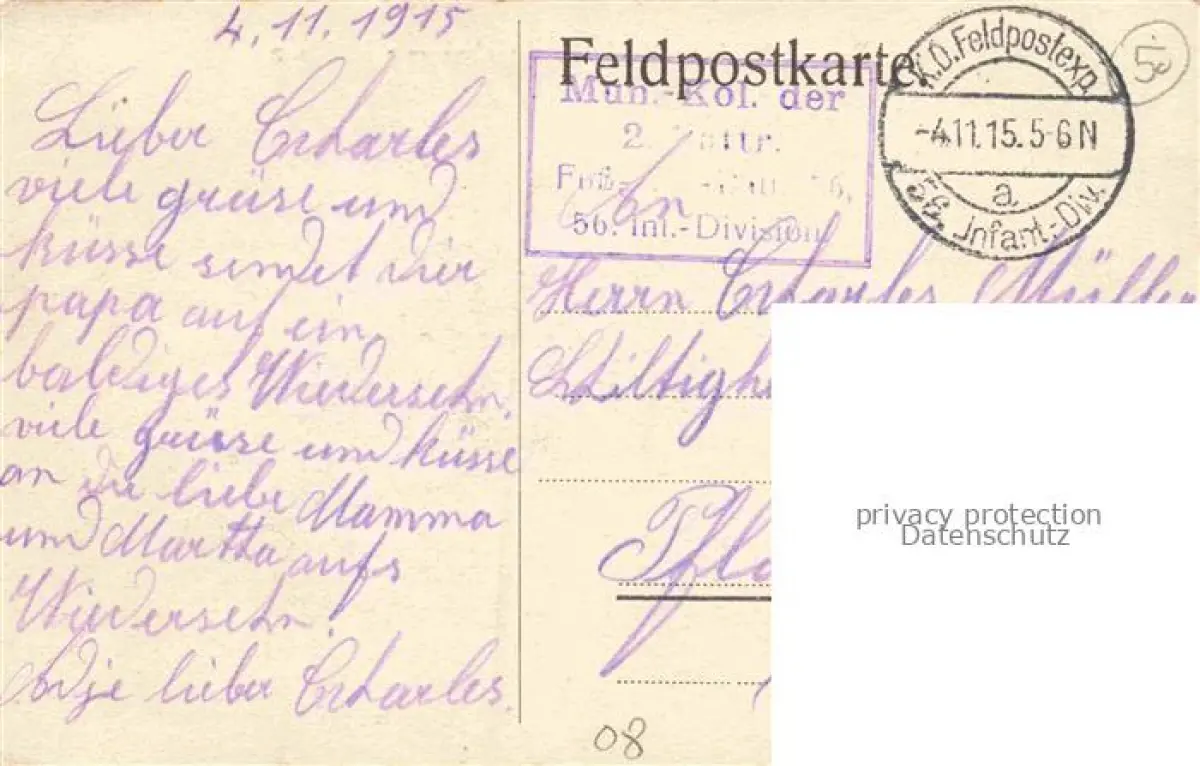 4.11.1915
Lieber Charles
viele grüse und
küsse sendet dier
papa auf ein
baldiges Wiedersehn.
viele grüsse und küsse
an die liebe Mamma
und Martha aufs
Wiedersehn.
Adje lieber Charles.
Feldpostkarte.
Mun.-Kol. der
2. Battr.
56. Inf.-Division
K.D. Feldpostexp.
-4.11.15. 5-6 N
a
56. Infant.-Div.
50
An
Herrn Charles Müller
08
privacy protection
Datenschutz